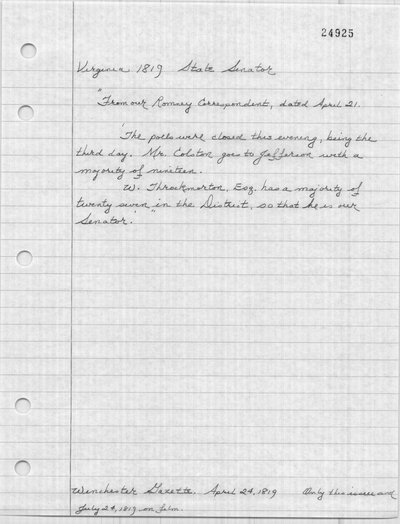 24925
Virginia 1819 State Senator
"From our Romney Correspondent, dated April 21.
'The polls were closed this evening, being the
third day. Mr. Colston goes to Jefferson with a
majority of nineteen.
W. Throckmorton, Esq. has a majority of
twenty seven in the District, so that he is our
Senator.'"
Winchester Gazette. April 24, 1819 Only this issue and
July 24, 1819 on film.